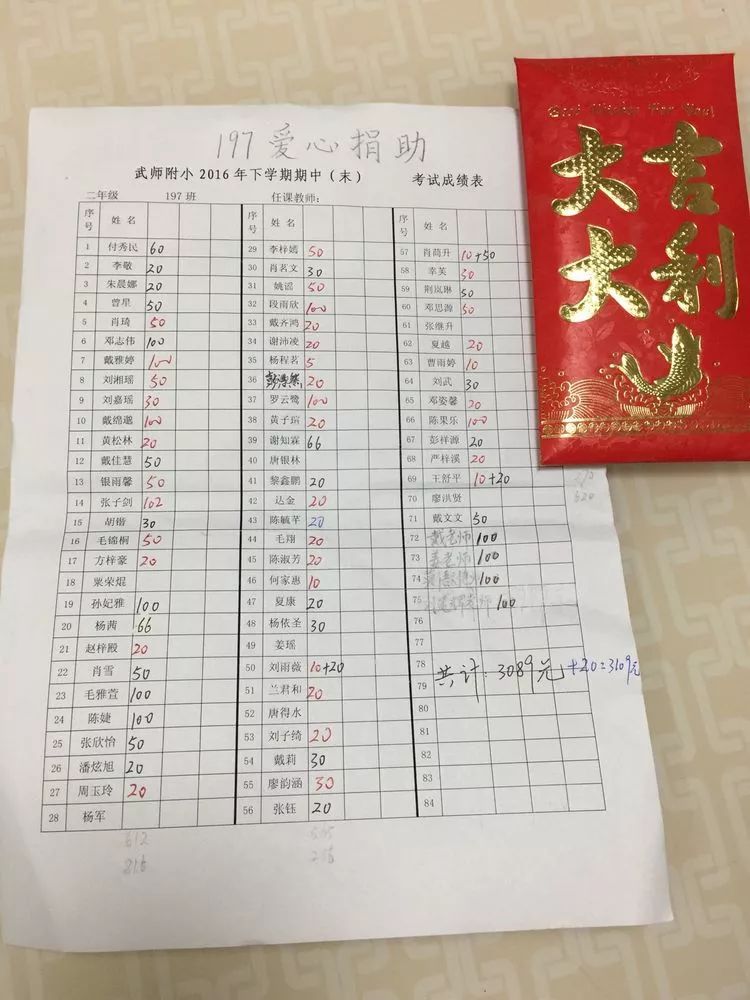 197 爱心捐助
武师附小 2016 年下学期期中（末） 考试成绩表
二年级 197 班 任课教师：
序号 姓名
1 付秀民 60
2 李敬 20
3 朱晨娜 20
4 曾星 50
5 肖琦 50
6 邓志伟 100
7 戴雅婷 100
8 刘湘瑶 50
9 刘嘉瑶 30
10 戴绵邈 100
11 黄松林 20
12 戴佳慧 50
13 银雨馨 50
14 张子剑 102
15 胡锴 30
16 毛锦桐 50
17 方梓豪 20
18 粟荣焜
19 孙妃雅 100
20 杨茜 66
21 赵梓殿 20
22 肖雪 50
23 毛雅萱 100
24 陈婕 100
25 张欣怡 50
26 潘炫旭 20
27 周玉玲 20
28 杨军
612
816
序号 姓名
29 李梓嫣 50
30 肖茗文 30
31 姚谣 50
32 段雨欣 100
33 戴齐鸿 20
34 谢沛凌 20
35 杨程茗 5
36 20
37 罗云鹭 100
38 黄子瑄 20
39 谢知霖 66
40 唐银林
41 黎鑫鹏 20
42 达金 20
43 陈毓芊 20
44 毛翔 20
45 陈淑芳 20
46 何家惠 10
47 夏康 20
48 杨依圣 30
49 姜瑶
50 刘雨薇 10+20
51 兰君和 20
52 唐得水
53 刘子绮 20
54 戴莉 30
55 廖韵涵 30
56 张钰 20
序号 姓名
57 肖萵升 10+50
58 幸芙 30
59 荆岚琳 50
60 邓思源 50
61 张继升
62 夏越 20
63 曹雨婷 10
64 刘武 30
65 邓姿馨 20
66 陈果乐 100
67 彭祥源 20
68 严梓溪 20
69 王舒平 10+20
70 廖洪贤
71 戴文文 50
72 戴老师 100
73 姜老师 100
74 100
75 老师 100
76
77
78
79
共计：3089元+20=3109元
80
81
82
83
84
620
Good Wishes For You!
大吉
大利